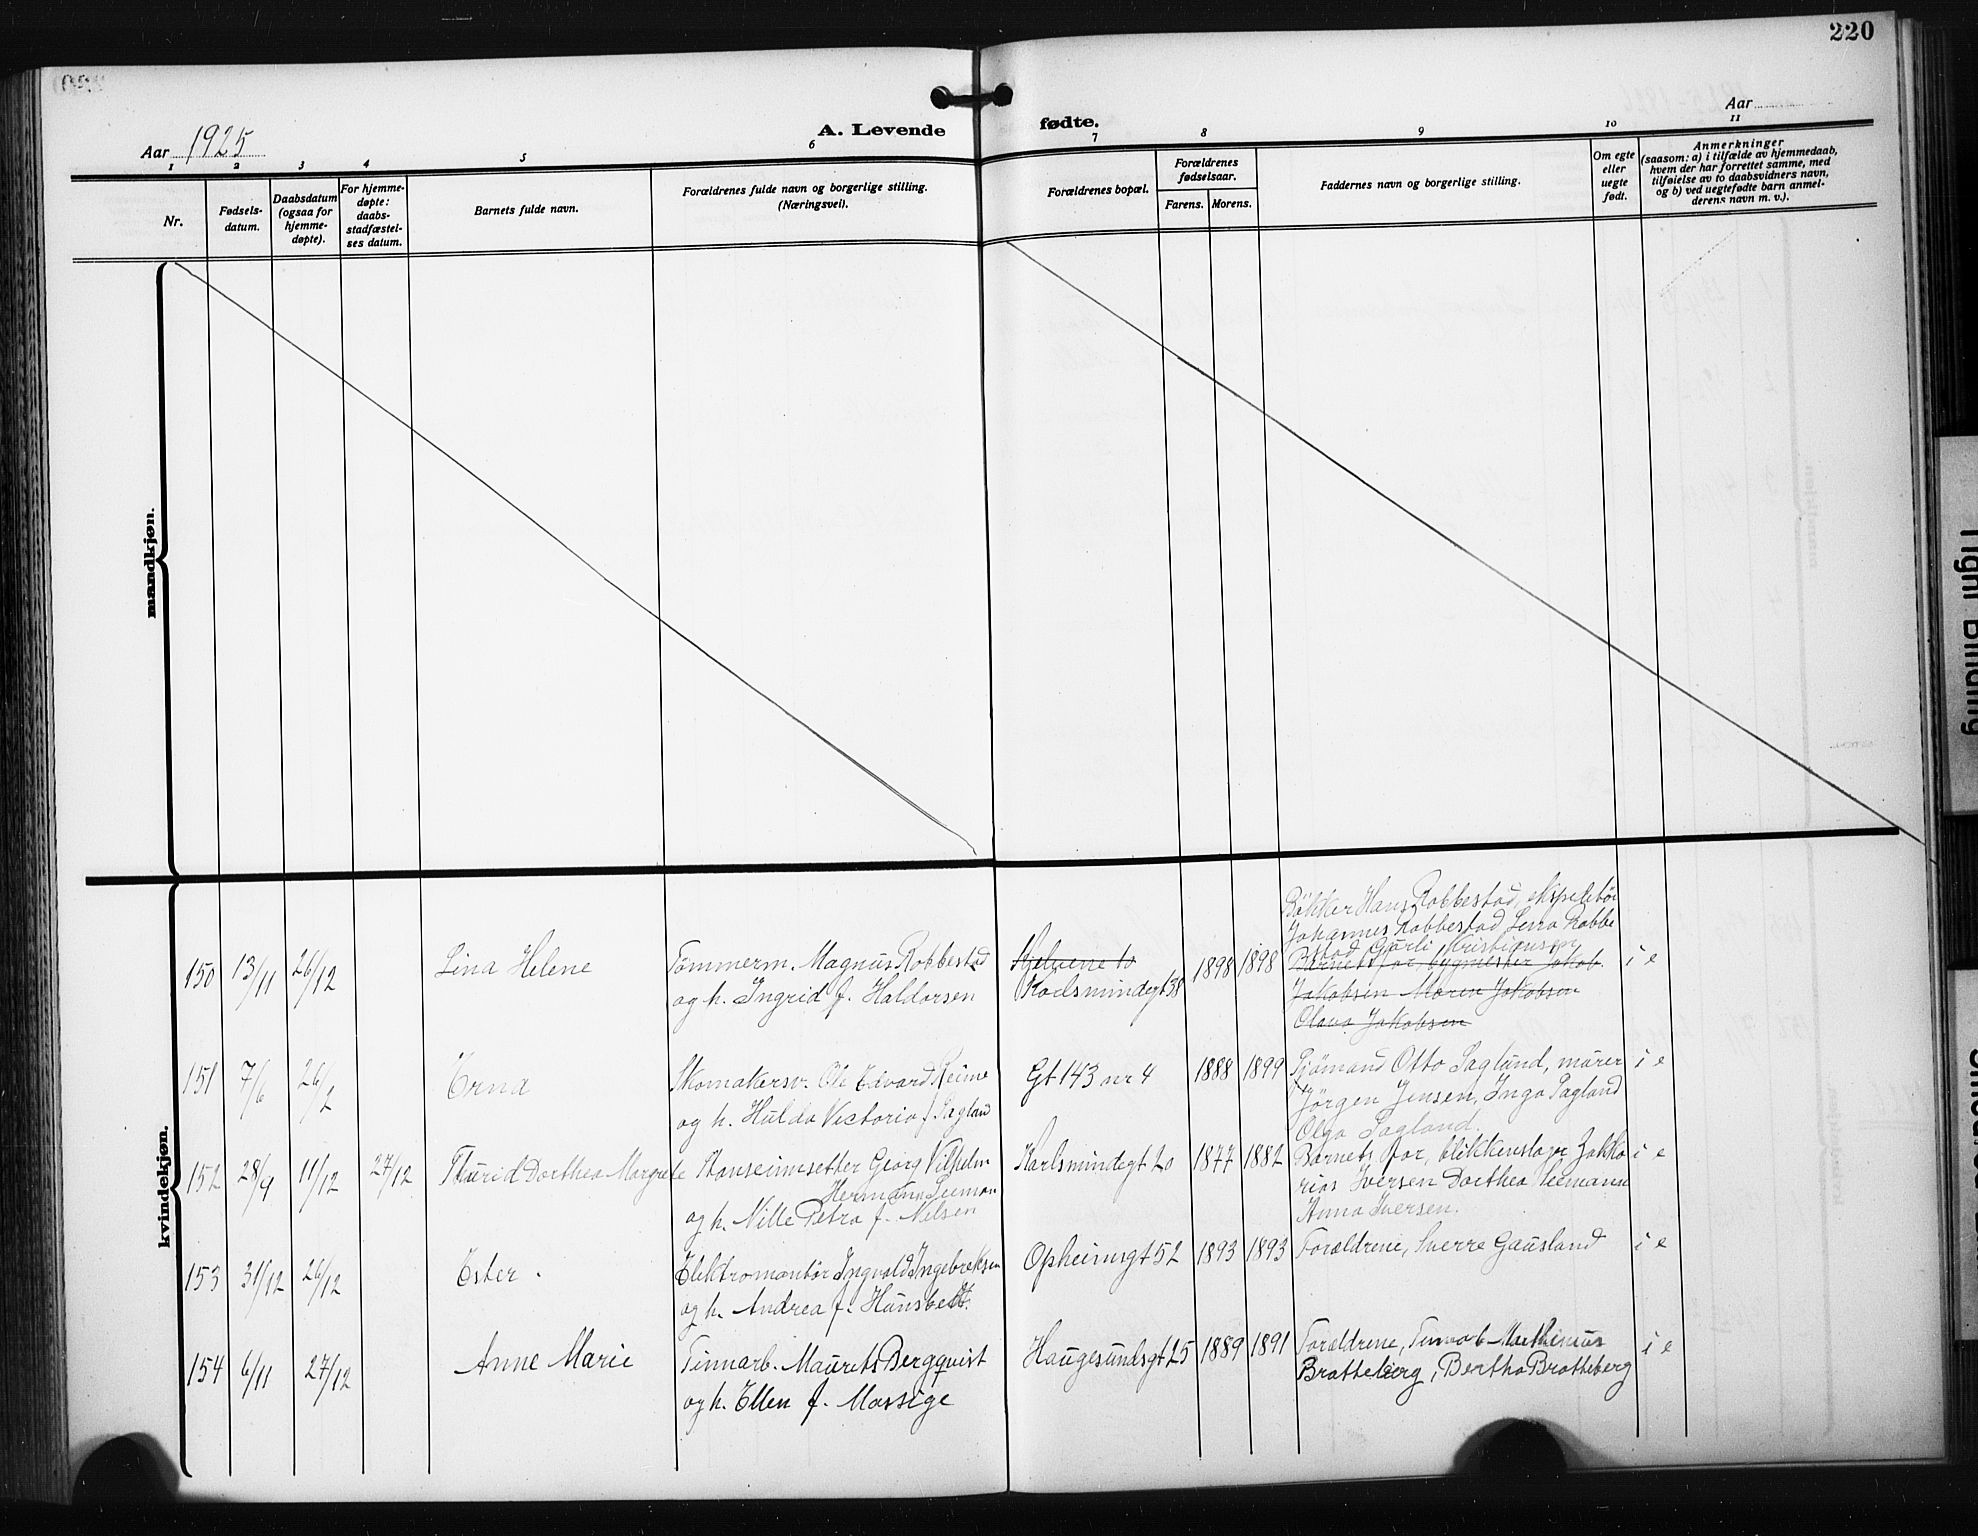 220
Aar 1925
A. Levende fødte.
Aar
1 2 3 4 5 6 7 8 9 10 11
Nr.
Fødsels-
datum.
Daabsdatum
(ogsaa for
hjemme-
døpte).
For hjemme-
døpte:
daabs-
stadfæstel-
ses datum.
Barnets fulde navn.
Forældrenes fulde navn og borgerlige stilling.
(Næringsvei).
Forældrenes bopæl.
Forældrenes
fødselsaar.
Farens. Morens.
Faddernes navn og borgerlige stilling.
Om egte
eller
uegte
født.
Anmerkninger
(saasom: a) i tilfælde av hjemmedaab,
hvem der har forrettet samme, med
tilføielse av to daabsvidners navn,
og b) ved uegtefødte barn anmel-
derens navn m. v.).
mandkjøn.
kvindekjøn.
150 13/11 26/12 Lina Helene
Tømmerm. Magnus Robbestad
og h. Ingrid f. Haldorsen
Hjelvene 10
Karlsmindegt 38
1898 1898
Bøkker Hans Robbestad, ekspeditør
Johannes Robbestad Lena Robbe
stad Gurli Kristiansen
Barnets far, bygmester Jakob
Jakobsen Maren Jakobsen
Olava Jakobsen
i e
151 7/6 26/2 Erna
Skomakersv. Ole Edvard Reime
og h. Hulda Victoria f. Sagland
Gt 143 nr 4
1888 1899
Sjømand Otto Saglund, murer
Jørgen Jensen, Inga Sagland
Olga Sagland.
i e
152 28/9 11/12 27/12 Thurid Dorthea Margrete
Stanseinnsetter Georg Vilhelm
Hermann Seeman
og h. Nille Petra f. Nilsen
Karlsmindegt 20
1877 1882
Barnets far, blikkenslager Zakka
rias Iversen Dorthea Seemann
Anna Iversen.
i e
153 31/12 26/12 Ester.
Elektromontør Ingvald Ingebretsen
og h. Andrea f. Hunsbedt.
Opheimsgt 52
1893 1893
Forældrene, Sverre Gausland
i e
154 6/11 27/12 Anne Marie
Tinnarb. Maurits Bergqvist
og h. Ellen f. Massige
Haugesundsgt 25
1889 1891
Forældrene, Tinnarb Mathinius
Brattebierg, Bertha Brotteberg
i e